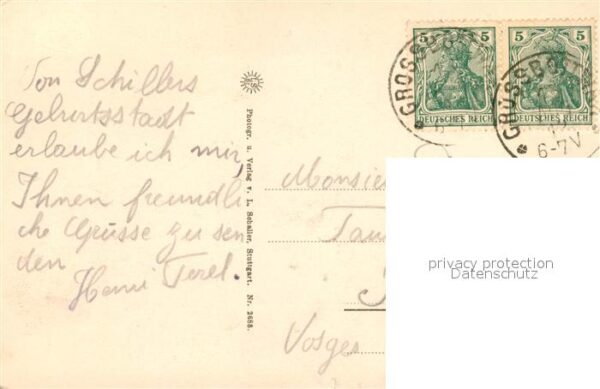 Von Schillers
Geburtsstadt
erlaube ich mir,
Ihnen freundli
che Grüsse zu sen
den
Photogr. u. Verlag v. L. Schaller, Stuttgart. Nr. 2688.
5 5
5 5
DEUTSCHES REICH
DEUTSCHES REICH
GROSSBOT
GROSSBOT
6-7V
Monsie
Vosges
privacy protection
Datenschutz